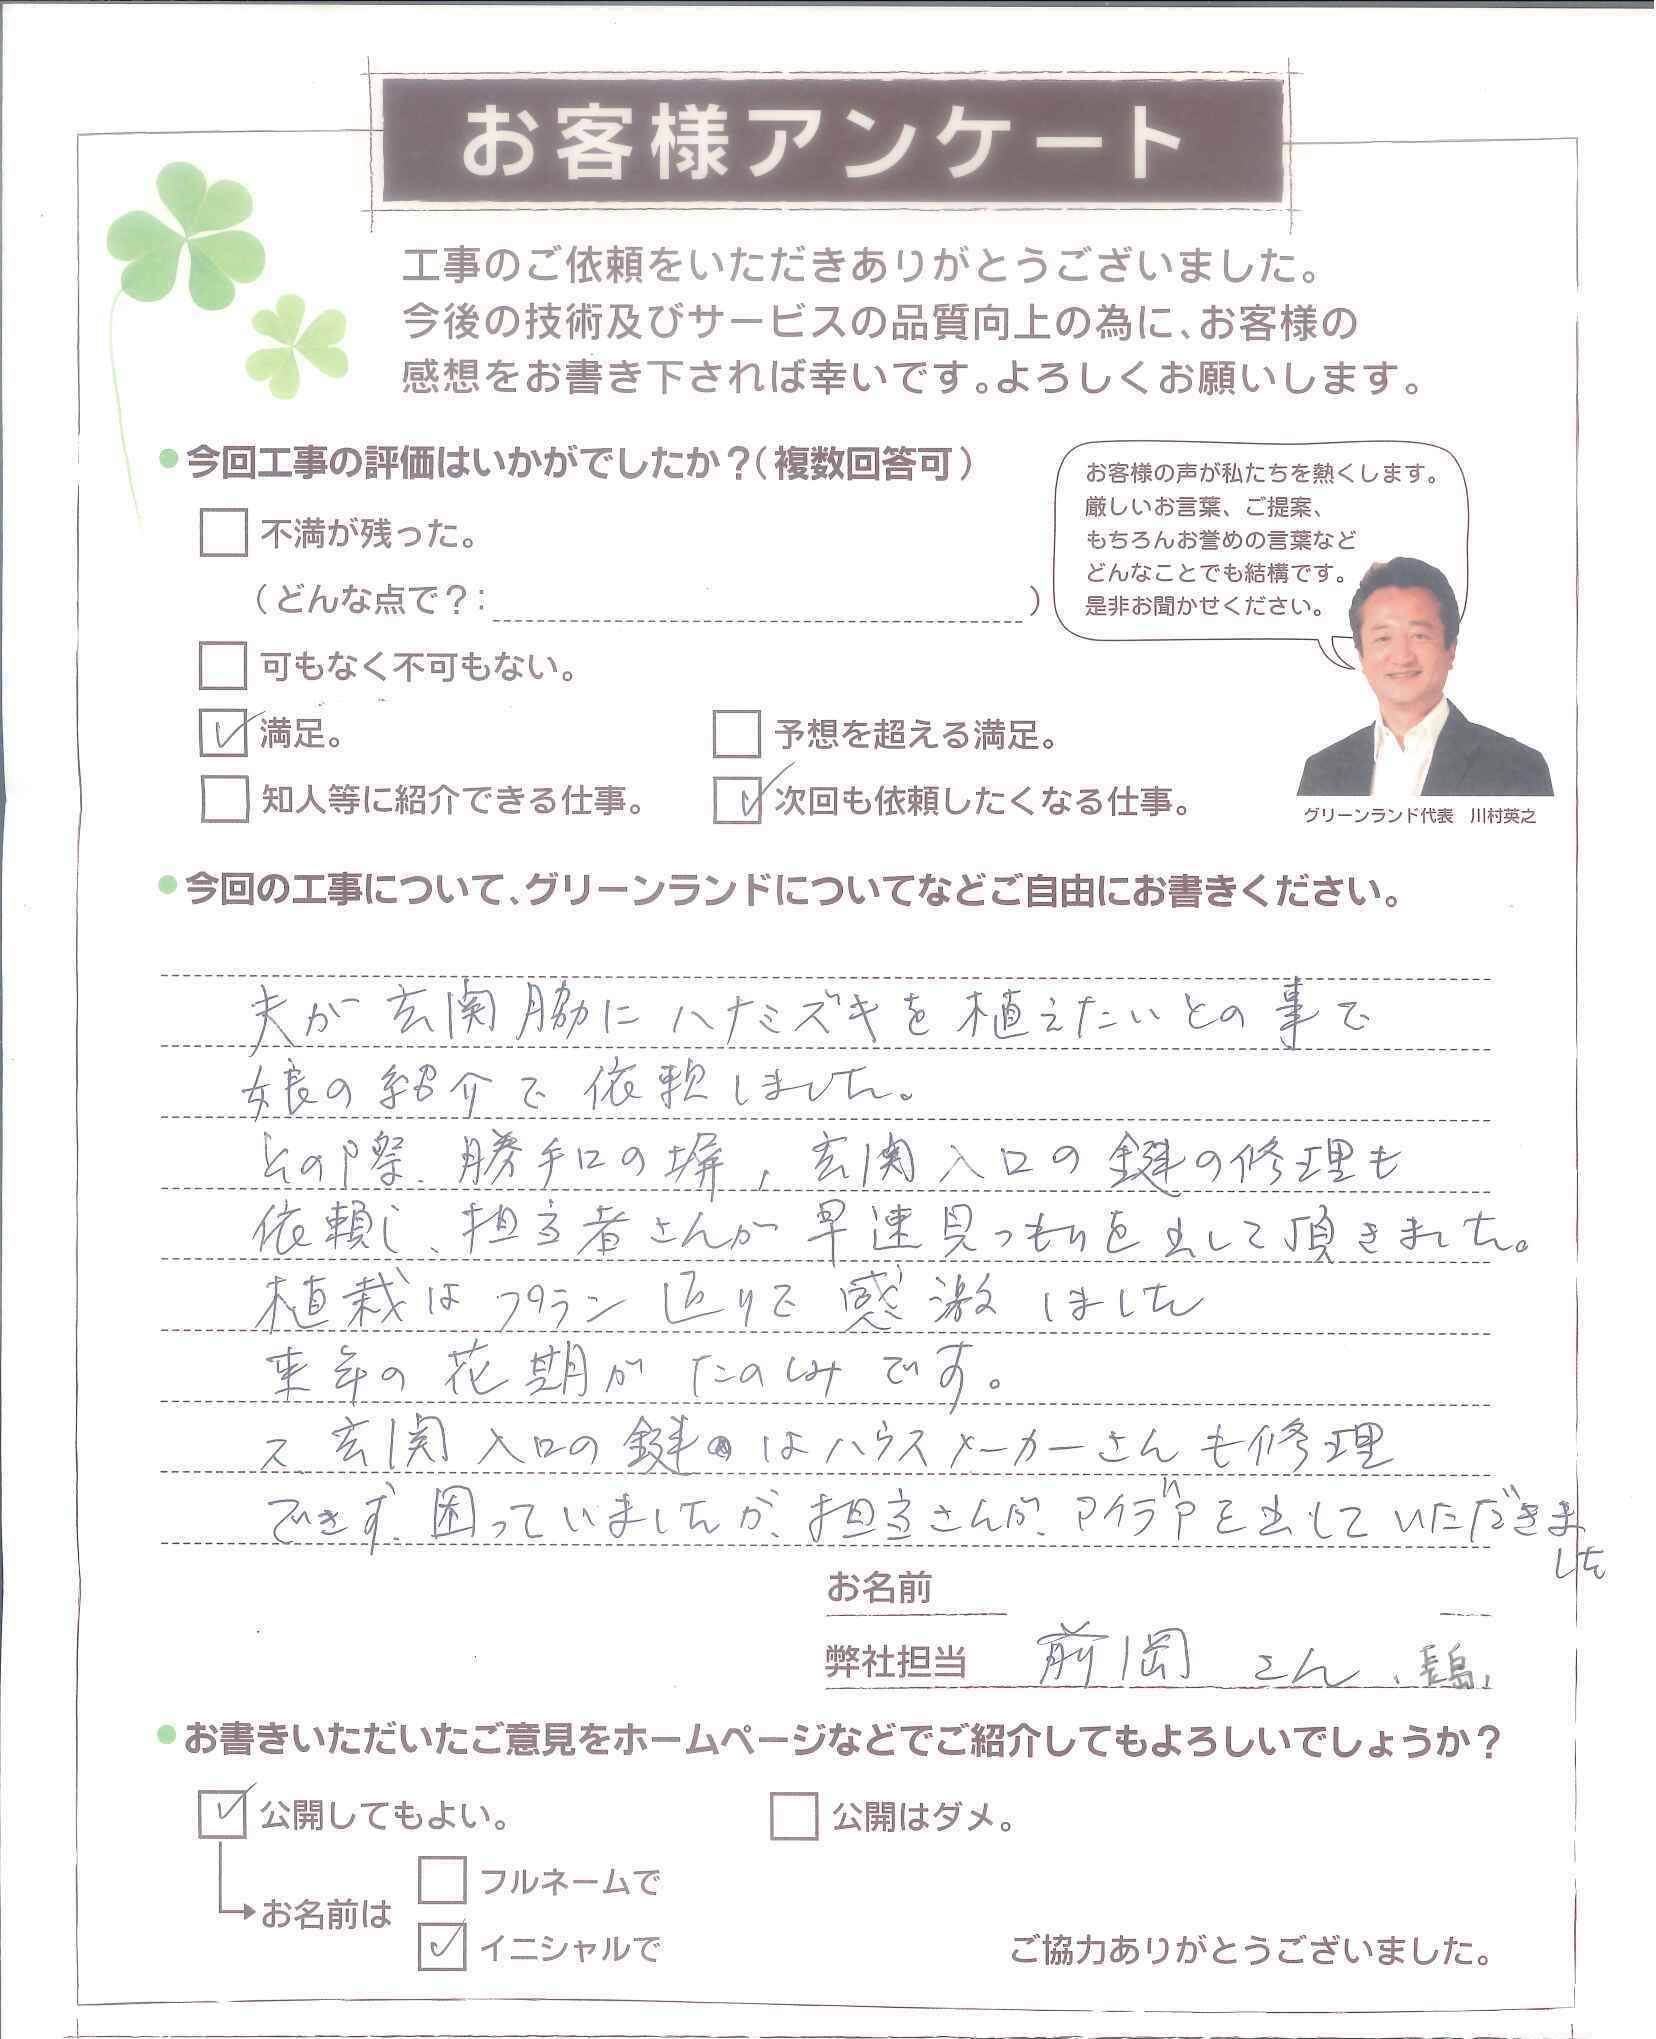 お客様アンケート
工事のご依頼をいただきありがとうございました。
今後の技術及びサービスの品質向上の為に、お客様の
感想をお書き下されば幸いです。よろしくお願いします。
今回工事の評価はいかがでしたか？（複数回答可）
不満が残った。
（どんな点で？： ）
可もなく不可もない。
満足。
予想を超える満足。
知人等に紹介できる仕事。
次回も依頼したくなる仕事。
お客様の声が私たちを熱くします。
厳しいお言葉、ご提案、
もちろんお誉めの言葉など
どんなことでも結構です。
是非お聞かせください。
グリーンランド代表 川村英之
今回の工事について、グリーンランドについてなどご自由にお書きください。
夫が玄関脇にハナミズキを植えたいとの事で
娘の紹介で依頼しました。
その際、勝手口の塀，玄関入口の鍵の修理も
依頼し、担当者さんが早速見つもりを出して頂きました。
植栽はプラン通りで感激しました
来年の花期がたのしみです。
又、玄関入口の鍵はハウスメーカーさんも修理
できず、困っていましたが、担当さんが、アイデアを出していただきま
した
お名前
弊社担当 前岡さん、長島
お書きいただいたご意見をホームページなどでご紹介してもよろしいでしょうか？
公開してもよい。
公開はダメ。
お名前は
フルネームで
イニシャルで
ご協力ありがとうございました。